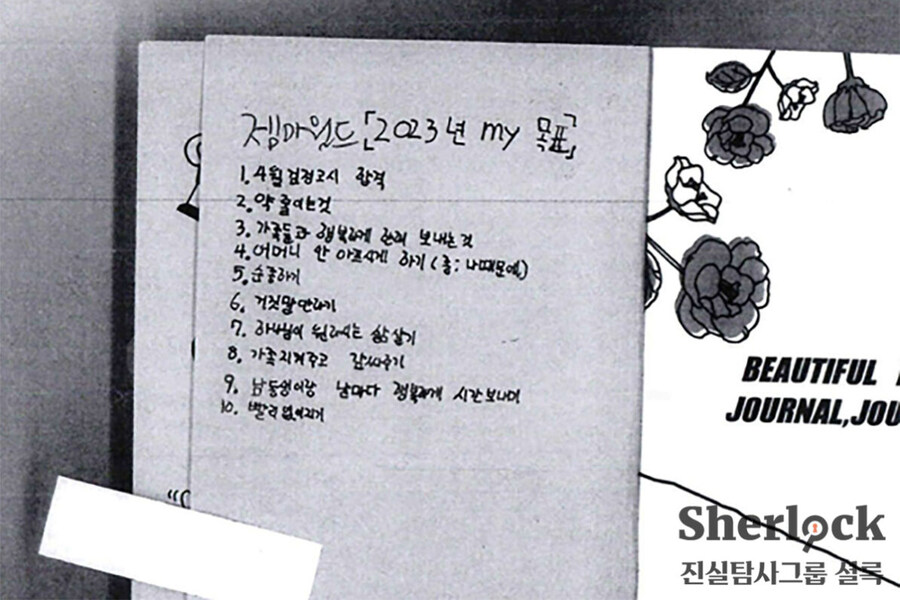 젬마월드「2023년 my 목표」
1. 4월 검정고시 합격
2. 약 줄이는것
3. 가족들과 행복하게 보내는것
4. 어머니 안 아프시게 하기 (좀; 나때문에)
5. 순종하기
6. 거짓말안하기
7. 하나님이 원하시는 삶살기
8. 가족지켜주고 감싸주기
9. 남동생이랑 날마다 행복하게 시간보내기
10. 빨리 없어지기
BEAUTIFUL
JOURNAL,JOU
Sherlock
진실탐사그룹 셜록